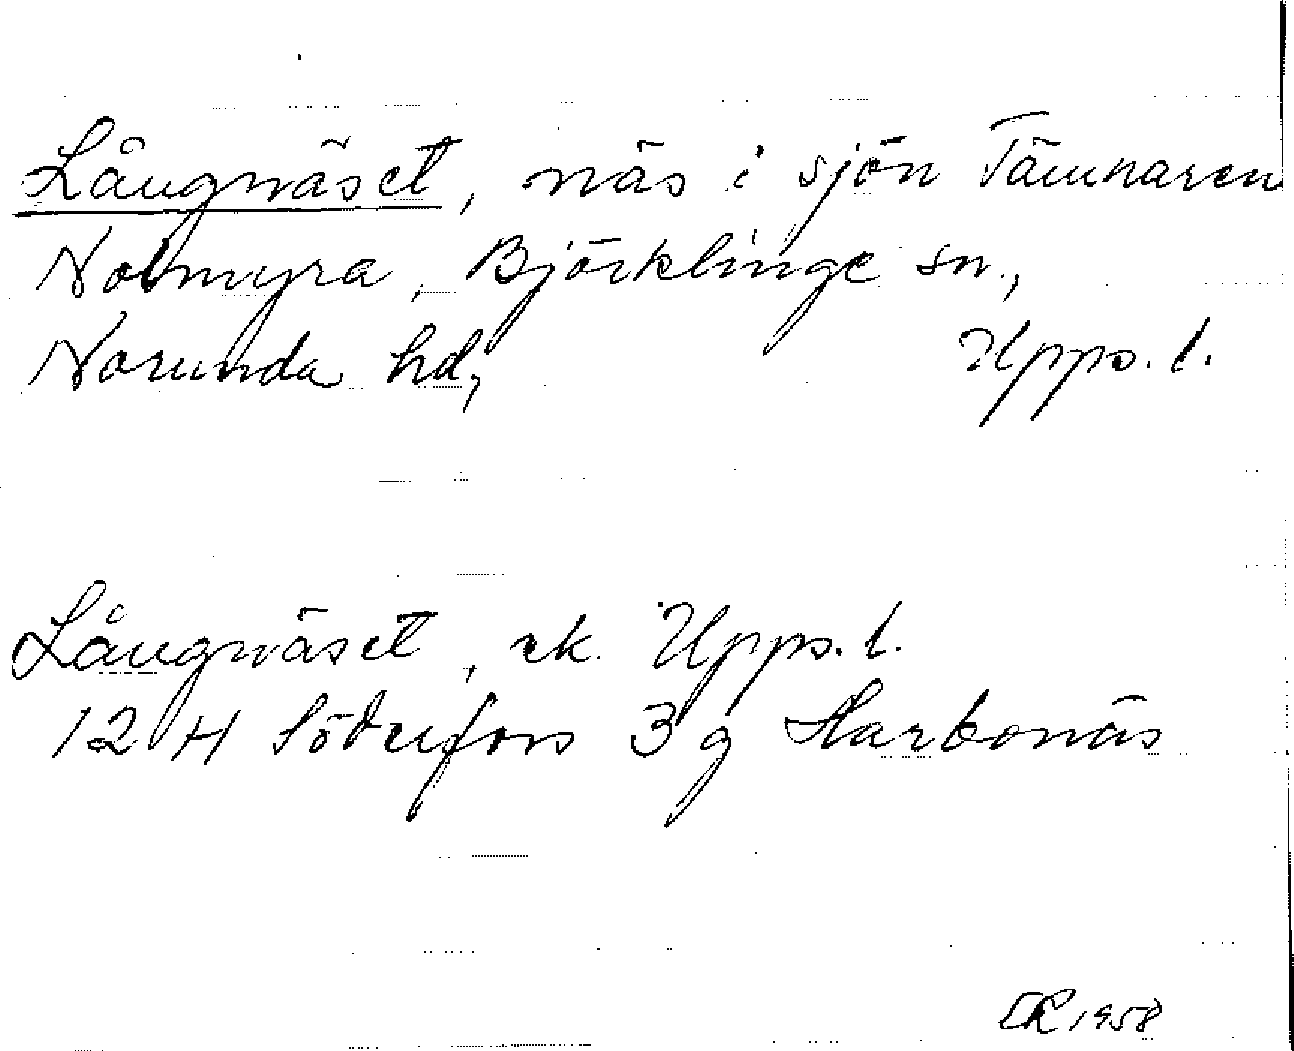 Långnäset, näs i sjön Tämnaren
Nolmyra, Björklinge sn.,
Norunda hd,   Upps. l.
Långnäset, ek. Upps. l.
12 H Söderfors 3 g Harbonäs
ER 1958